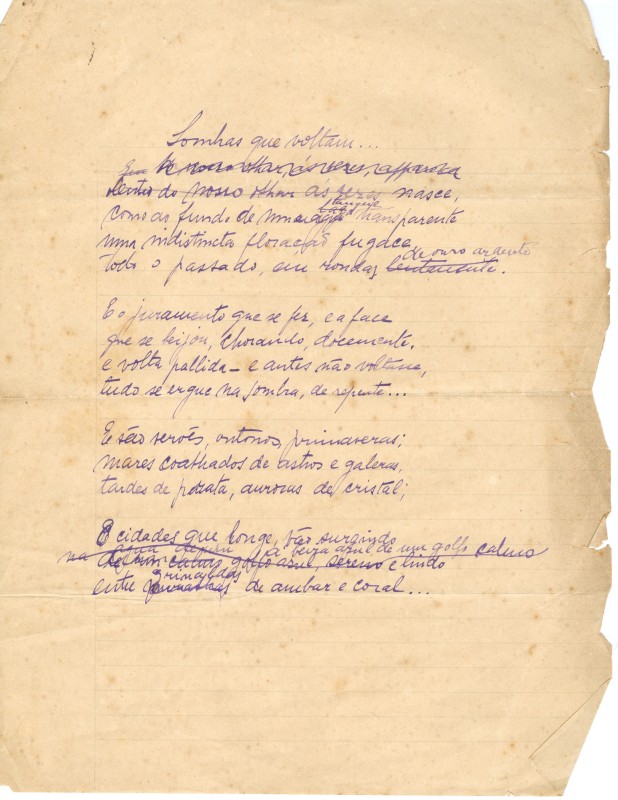 Sombras que voltam...
De nosso olhar, ás vezes, apparece
dentro do nosso olhar ás vezes nasce,
tanque
como ao fundo de um lago transparente
uma indistincta floração fugace
de ouro ardente
todo o passado, em rondas lentamente.
E o juramento que se fez, e a face
que se beijou, chorando, docemente.
e volta pallida - e antes não voltasse,
tudo se ergue na sombra, de repente...
E são serões, outonos, primaveras;
mares coalhados de astros e galeras,
tardes de prata, auroras de cristal;
E cidades que longe, vão surgindo
na agua á beira azul de um golfo calmo
de um golfo azul, sereno e lindo
grinaldas
entre de ambar e coral...